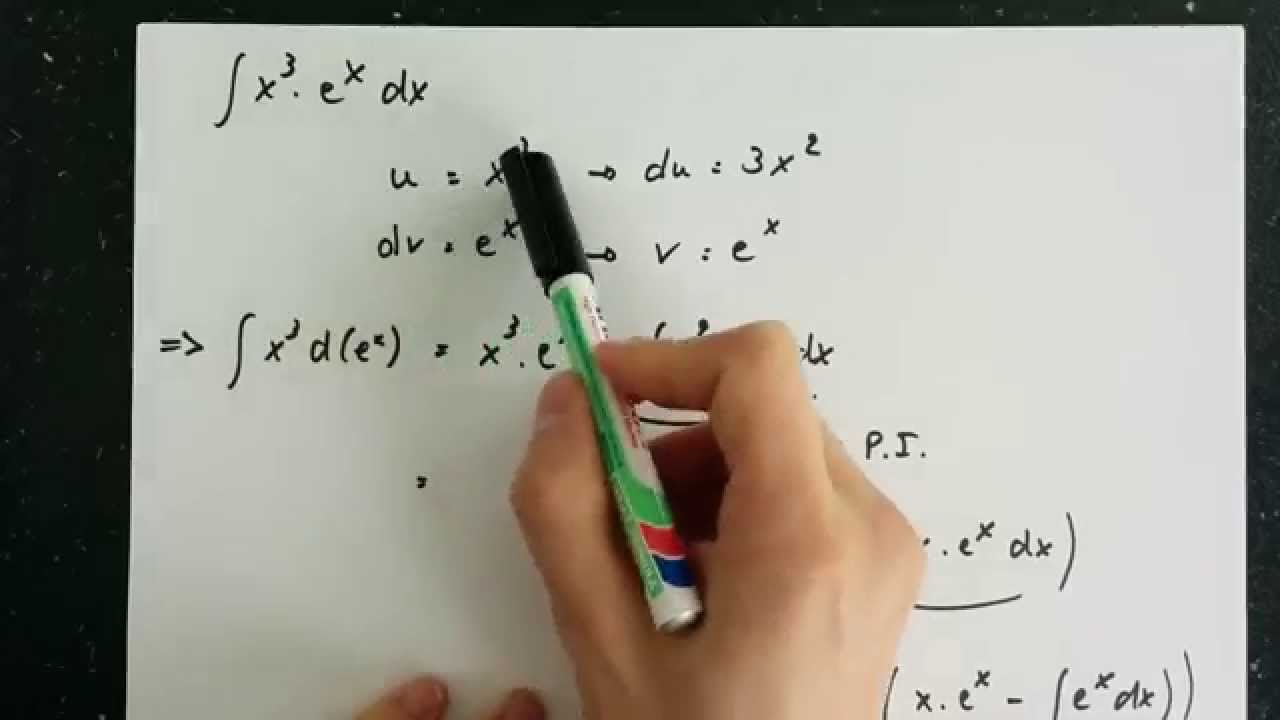 ∫ x³ · eˣ dx
u = x³ → du = 3x²
dv = eˣ → v = eˣ
=> ∫ x³ d(eˣ) = x³ · e dx
P.I.
=
· eˣ dx )
( x · eˣ - ∫ eˣ dx ))